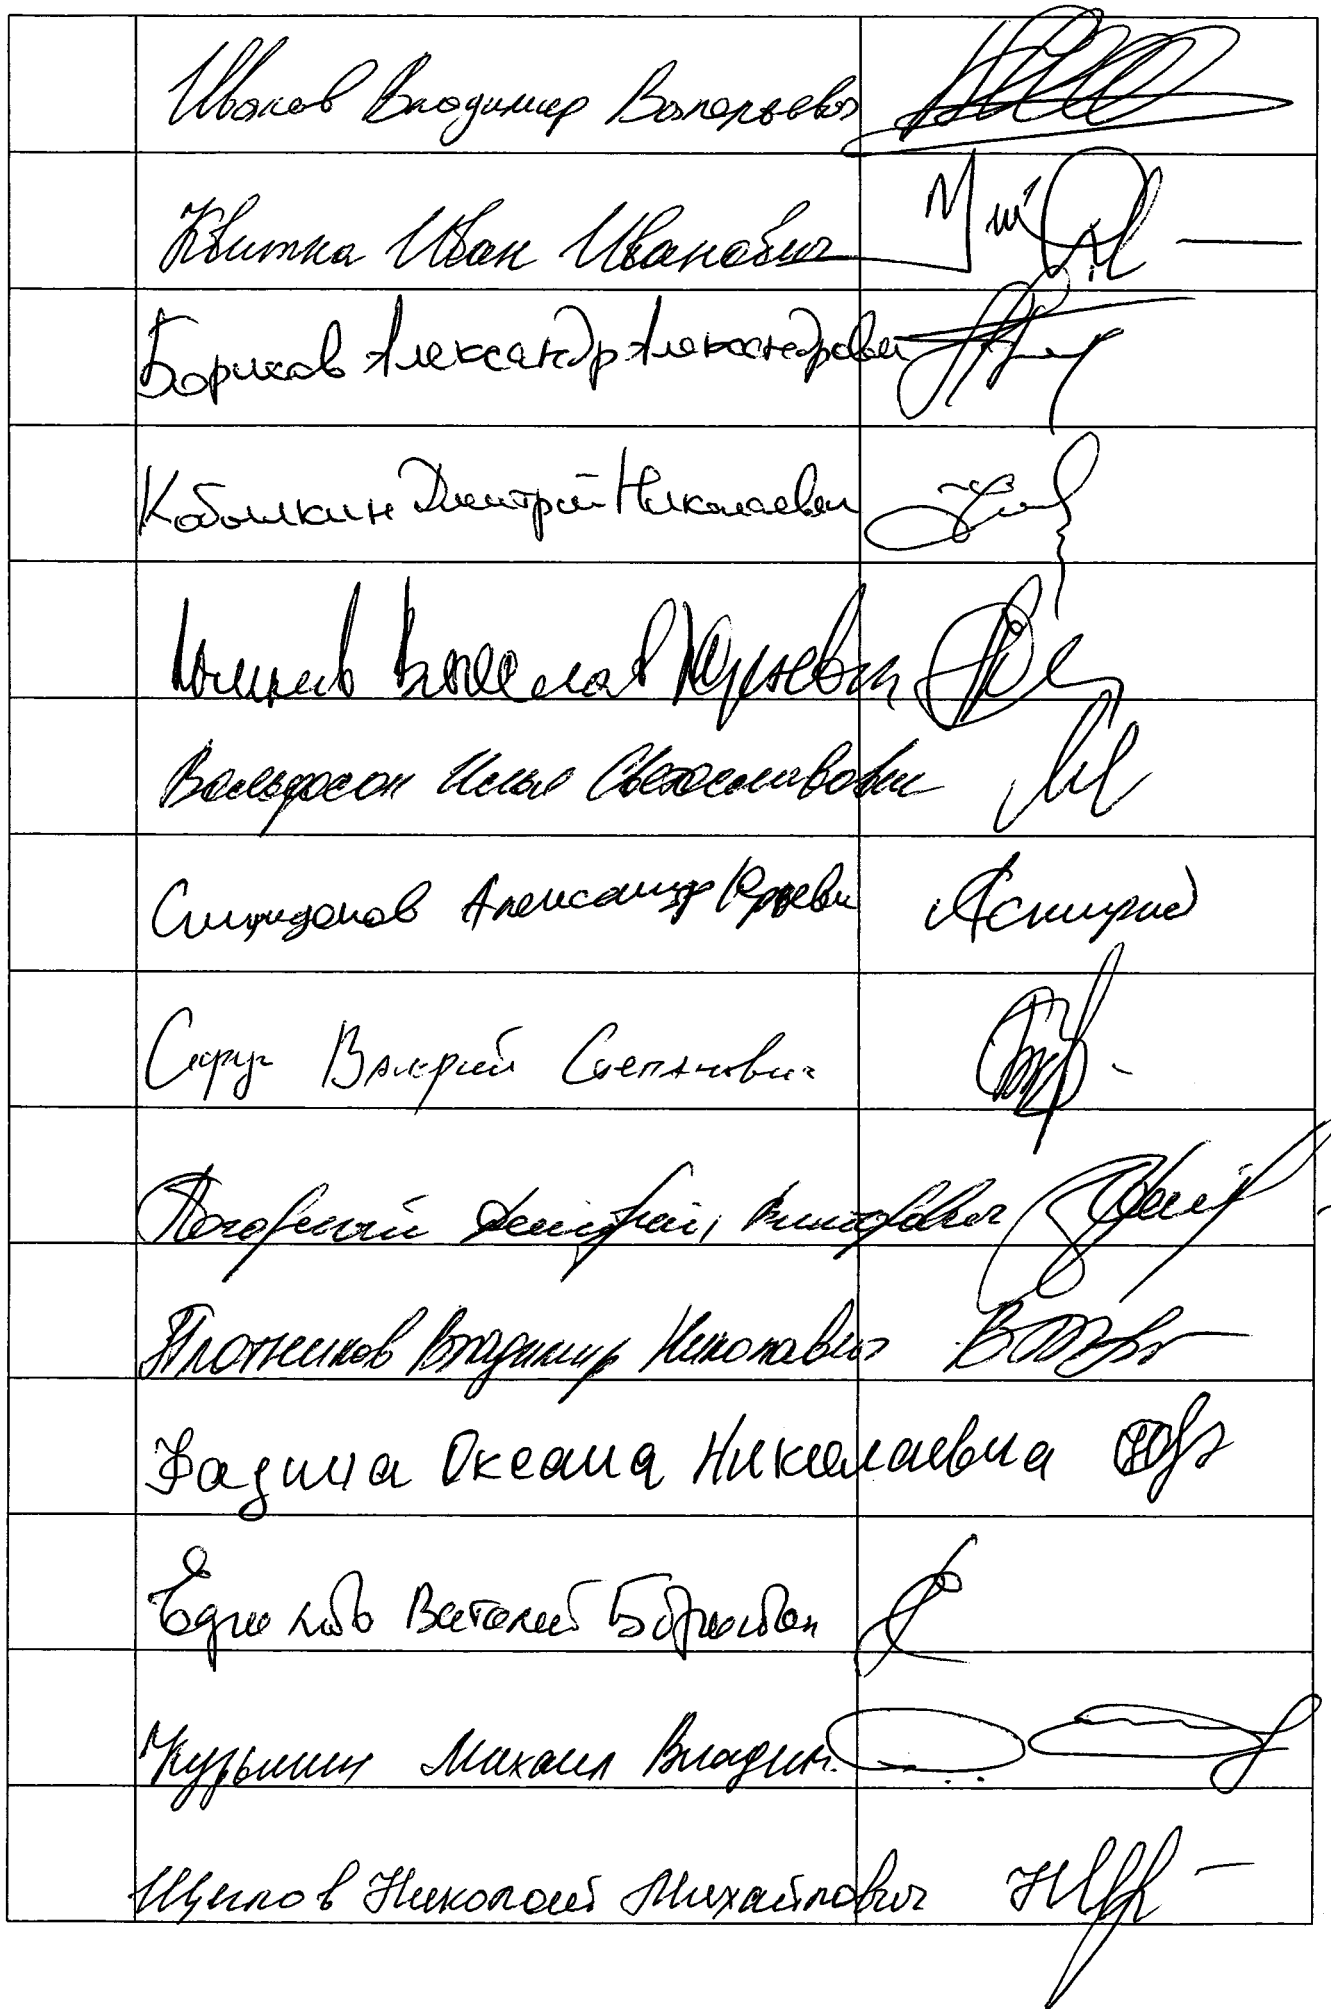 Иванов Владимир Валерьевич
Квитка Иван Иванович
Борисов Александр Александрович
Кобылкин Дмитрий Николаевич
Вячеслав Юрьевич
Вольфсон Илья Святославович
Спиридонов Александр Юрьевич
Валерий Степанович
Погорелый Дмитрий Викторович
Плотников Владимир Николаевич
Фадина Оксана Николаевна
Виталий Борисович
Курьянин Михаил Владим.
Щеглов Николай Михайлович